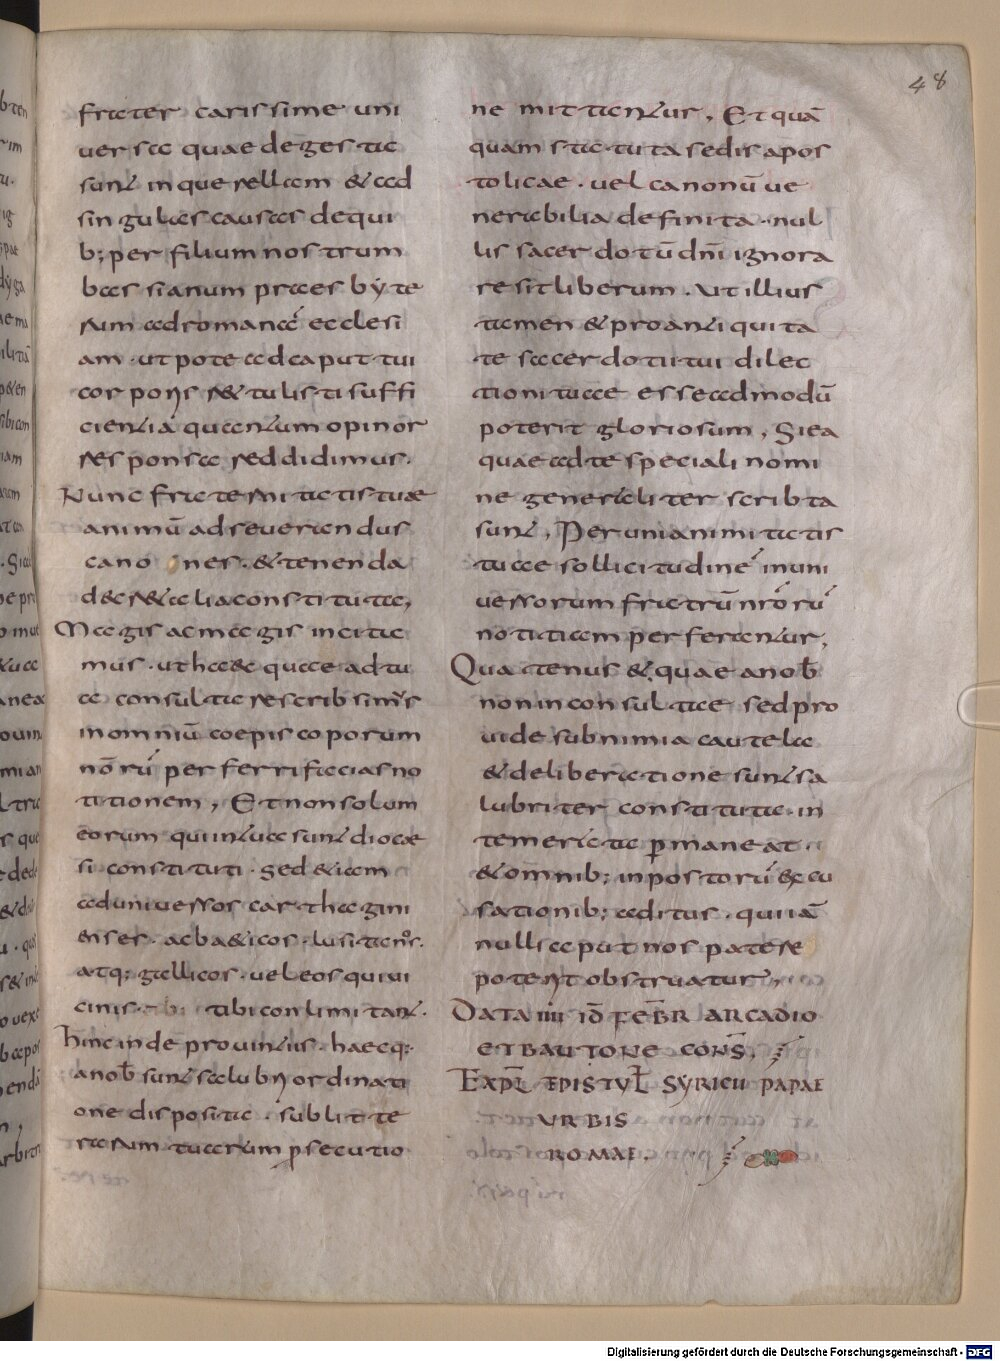 48
frater carissime uni
uersa quae degesta
sunt in querellam & ad
singulas causas dequi
b; per filium nostrum
bassianum praesbyte
rum ad romanā ecclesi
am · utpote ad caput tui
corporis rettulisti suffi
cientia quantum opinor
responsa reddidimus·
Nunc fraternitatis tuae
animū ad seruandus
canones · & tenenda
decretalia constituta,
Magis ac magis incita
mus · ut haec quae ad tu
a consulta rescribsimus
in omniū coepiscoporum
nōrū perferri facias no
titionem, Et non solum
eorum qui in tua sunt dioce
si constituti · sed etiam
ad uniuersos carthagini
enses · ac baeticos · lusitanos·
atq; gallicos · uel eos qui ui
cinis · tibi conlimitant·
hinc inde prouintiis · haec q;
a nob sunt salubri ordinati
one disposita · sub litte
rarum tuarum psecutio
ne mittantur, Et quā
quam statuta sedis apos
tolicae · uel canonū ue
nerabilia definita · nul
lis sacerdotū dn̄i ignora
re sit liberum · Utillius
tamen & pro antiquita
te sacerdotii tui dilec
tioni tuae esse admodū
poterit gloriosum, Si ea
quae ad te speciali nomi
ne generaliter scribta
sunt, Per unianimitatis
tuae sollicitudinē in uni
uersorum fratrū nr̄orū
notitiam perferantur,
Quatenus & quae a nob
non inconsultae sed pro
uide sub nimia cautela
& deliberatione sunt sa
lubriter constituta · in
temerata pmaneat
& omnib; in posterū excu
sationib; aditus · qui iā
nulli aput nos patere
poterit obstruatur,
DATA IIII ID FEBR ARCADIO
ET BAUTONE CONS,
EXPL EPISTUL SYRICII PAPAE
URBIS
ROMAE,
Digitalisierung gefördert durch die Deutsche Forschungsgemeinschaft - DFG